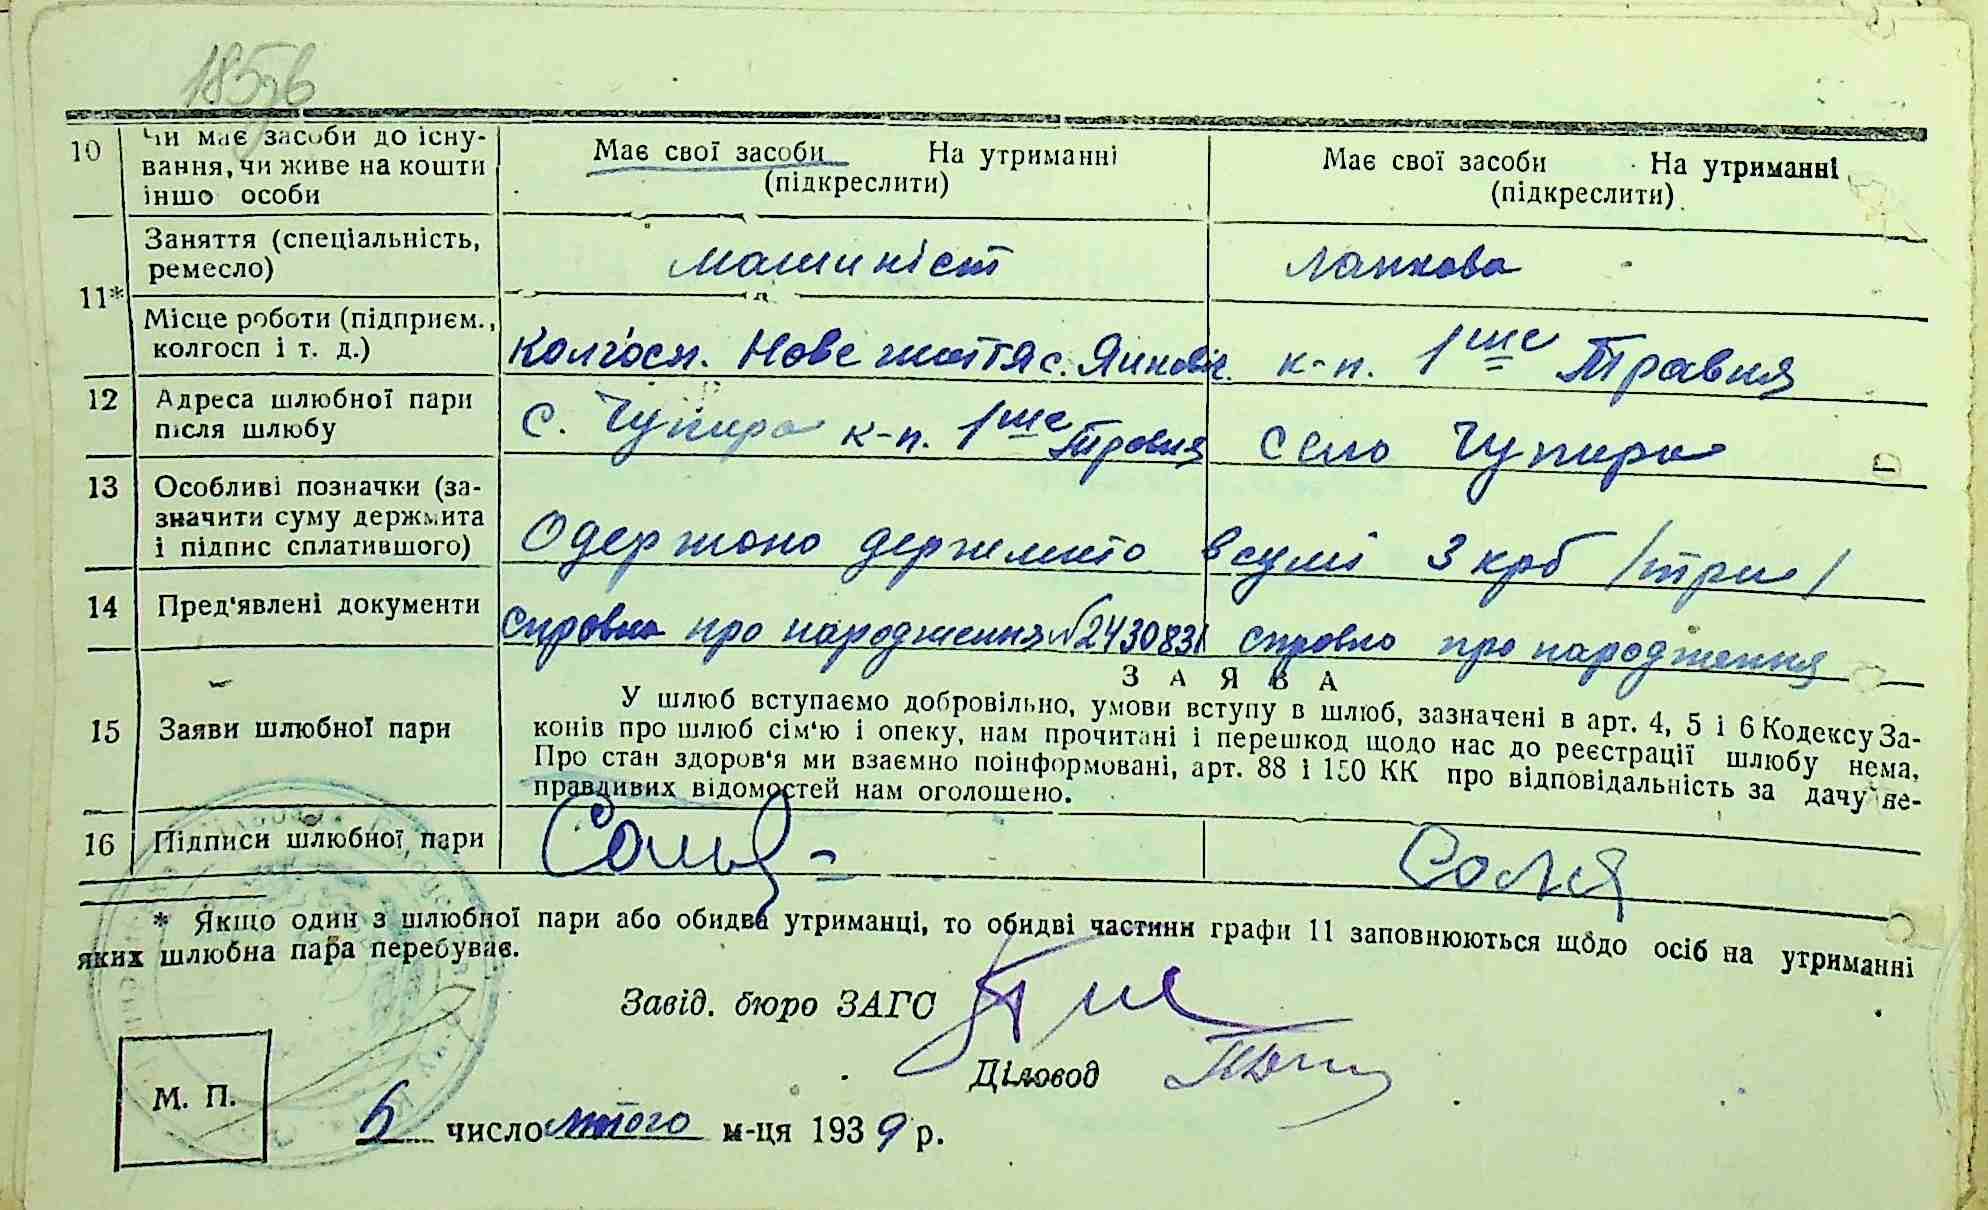 185зв
10 Чи має засоби до існу- Має свої засоби На утриманні Має свої засоби На утриманні
вання, чи живе на кошти (підкреслити) (підкреслити)
іншо особи
11* Заняття (спеціальність, машиніст ланкова
ремесло)
Місце роботи (підприєм., Колгосп. Нове життя с. к-п. 1ше Травня
колгосп і т. д.)
12 Адреса шлюбної пари с. Чупира к-п. 1ше Травня Село Чупира
після шлюбу
13 Особливі позначки (за-
значити суму держмита Одержано держмито в сумі 3 крб /три/
і підпис сплатившого)
14 Пред'явлені документи справка про народження №2430831 справка про народження
З А Я В А
15 Заяви шлюбної пари У шлюб вступаємо добровільно, умови вступу в шлюб, зазначені в арт. 4, 5 і 6 Кодексу За-
конів про шлюб сім'ю і опеку, нам прочитані і перешкод щодо нас до реєстрації шлюбу нема,
Про стан здоров'я ми взаємно поінформовані, арт. 88 і 150 КК про відповідальність за дачу не-
правдивих відомостей нам оголошено.
16 Підписи шлюбної пари Соля
* Якщо один з шлюбної пари або обидва утриманці, то обидві частини графи 11 заповнюються щодо осіб на утриманні
яких шлюбна пара перебуває.
Завід. бюро ЗАГС
Діловод
М. П.
5 число лютого м-ця 1939 р.